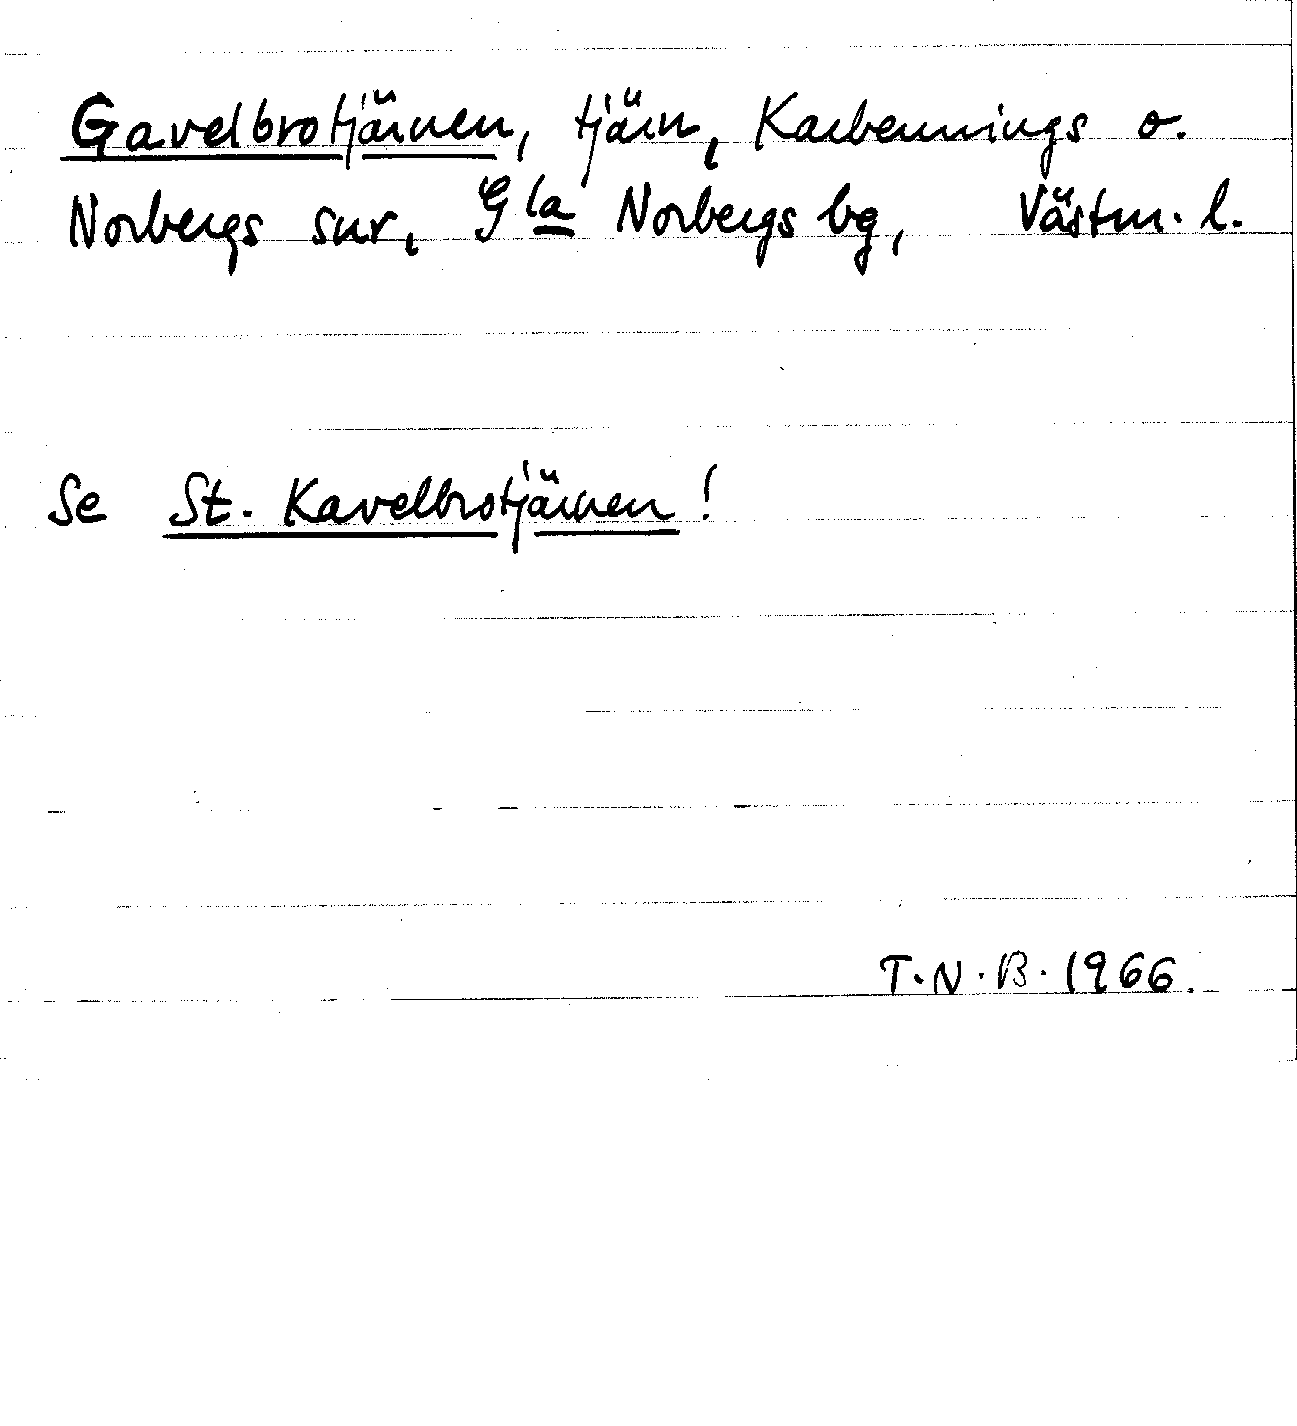 Gavelbrotjärnen, tjärn, Karbennings o.
Norbergs snr, Gla Norbergs bg, Västm. l.
Se St. Kavelbrotjärnen!
T.N.B. 1966.